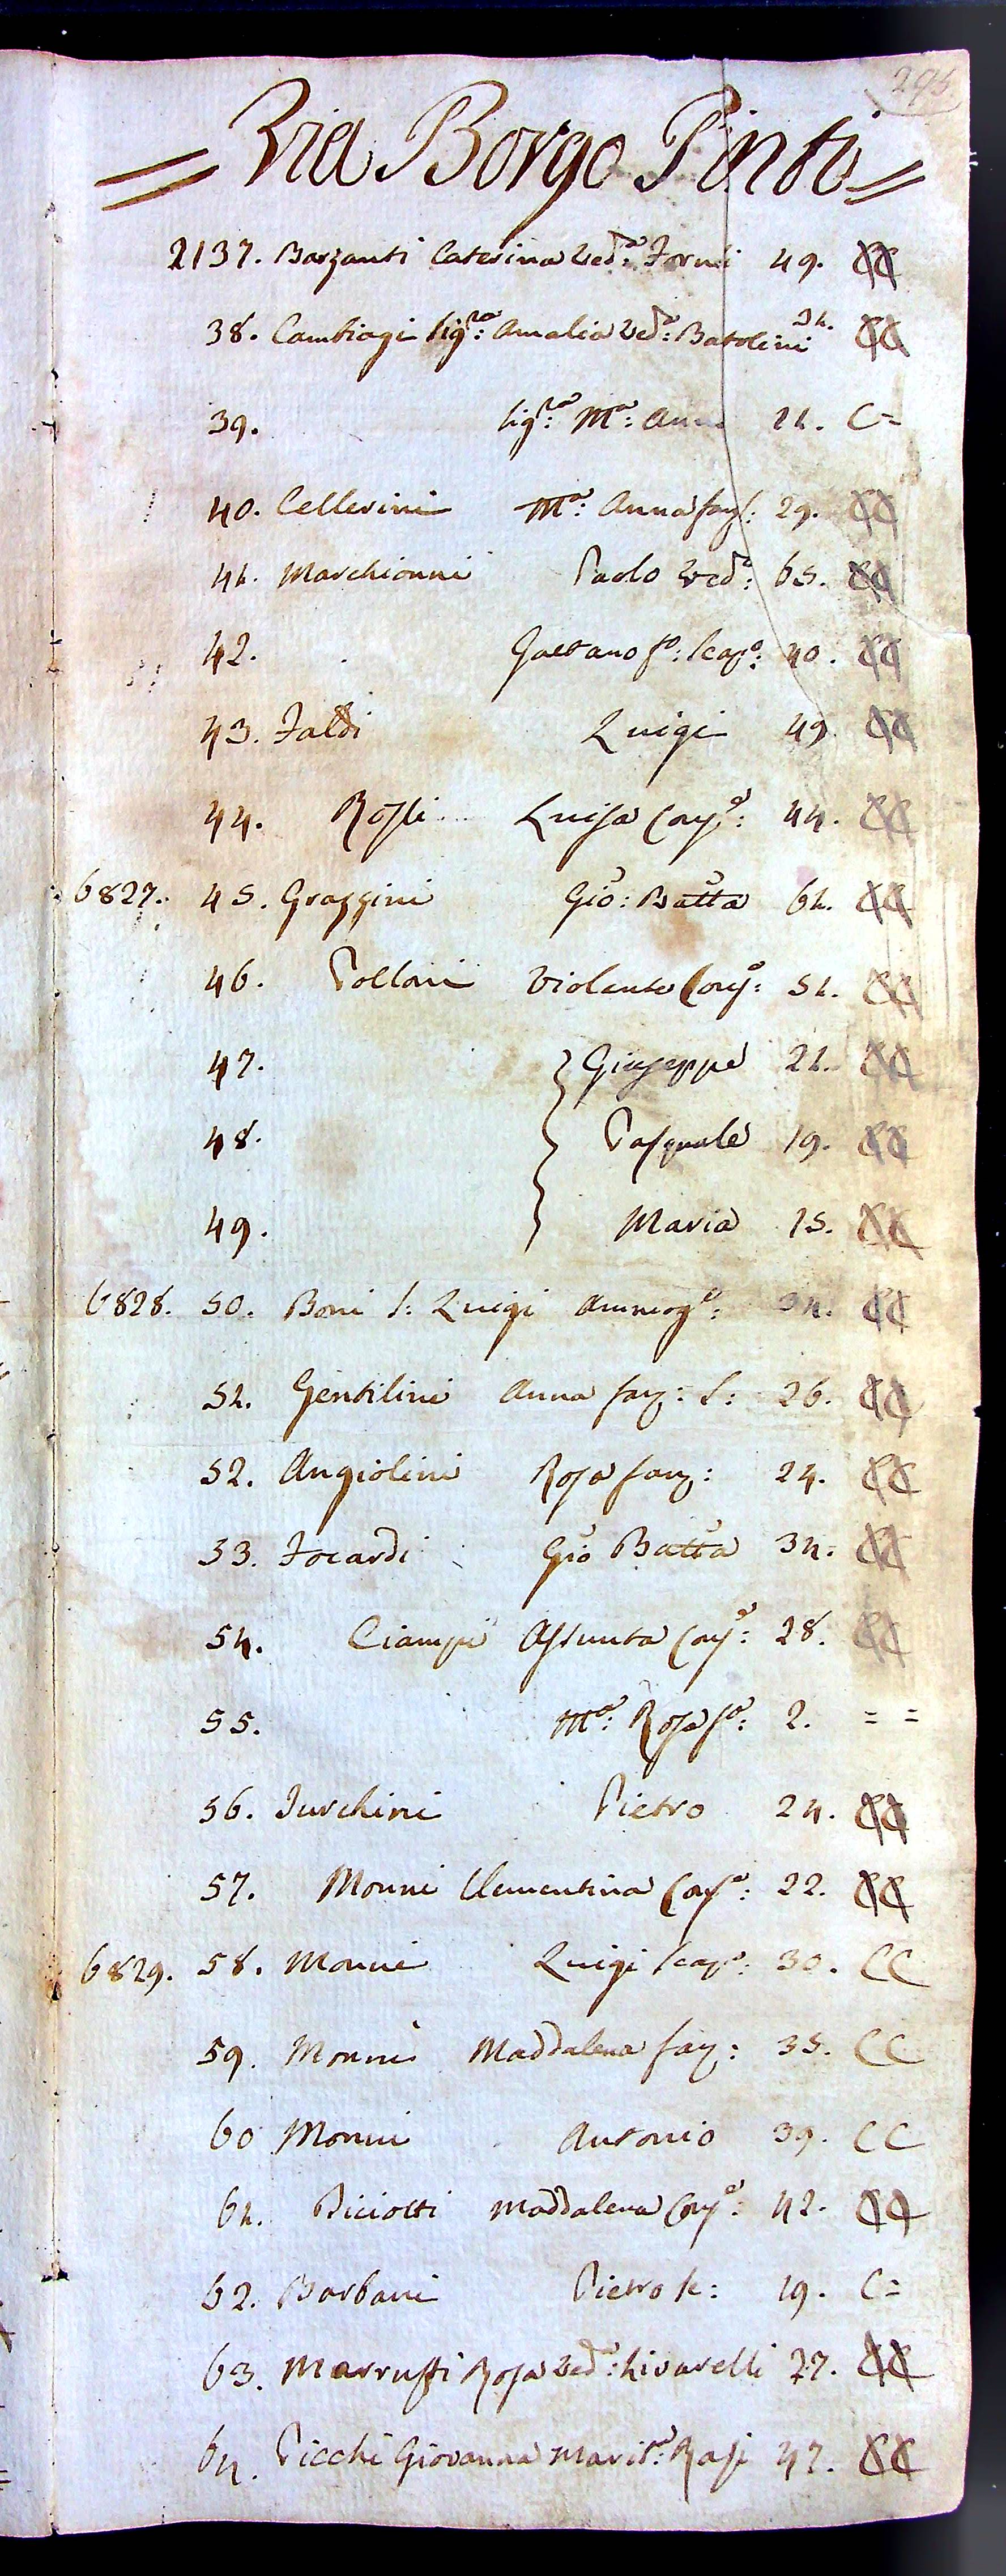 = Via Borgo Pinti =
2137. Barzanti Caterina Ved.a Forni 49. CC
38. Cambiagi Sig.ra Amalia Ved.a Batolini 31. CC
39. Sig.ra M.a Anna 21. C=
40. Cellerini M.a Anna fanf. 29. CC
41. Marchionni Paolo Ved.o 65. CC
42. Gaetano f.o: scap.o: 40. CC
43. Faldi Luigi 49. CC
44. Rossi Luisa Con.e: 44. CC
6827. 45. Grazzini Gio: Batta 61. CC
46. Polloni Violente Con.e: 51. CC
47. } Giuseppe 21. CC
48. } Pasquale 19. CC
49. } Maria 15. CC
6828. 50. Boni S: Luigi Ammog.o: 34. CC
51. Gentilini Anna fan: S: 26. CC
52. Angiolini Rosa fan: 24. CC
53. Focardi Gio Batta 34. CC
54. Ciampi Assunta Con.e: 28. CC
55. M.a: Rosa f.a: 2. = =
56. Turchini Pietro 24. CC
57. Monni Clementina Con.e: 22. CC
6829. 58. Monni Luigi scap.o: 30. CC
59. Monni Maddalena fan: 35. CC
60 Monni Antonio 39. CC
61. Biciotti Maddalena Con.e: 42. CC
62. Barbani Pietro sc: 19. C=
63. Marruffi Rosa Ved.a: Livarelli 27. CC
64. Picchi Giovanna Marit.a: Rasi 47. CC